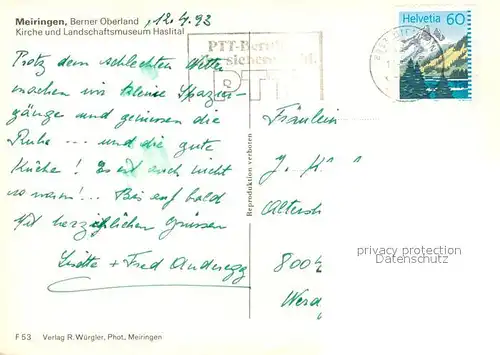 Meiringen, Berner Oberland, 12.4.93
Kirche und Landschaftsmuseum Haslital
PTT
Helvetia 60
Trotz dem schlechten Wetter
machen wir kleine Spazier-
gänge und geniessen die
Ruhe ... und die gute
Küche! Es ist auch nicht
so warm!... Bis auf bald
Mit herzlichen Grüssen
Lisette + Fred Anderegg
Reproduktion verboten
Fräulein
J. H
Altersh
800
Werd
privacy protection
Datenschutz
F 53 Verlag R. Würgler, Phot. Meiringen